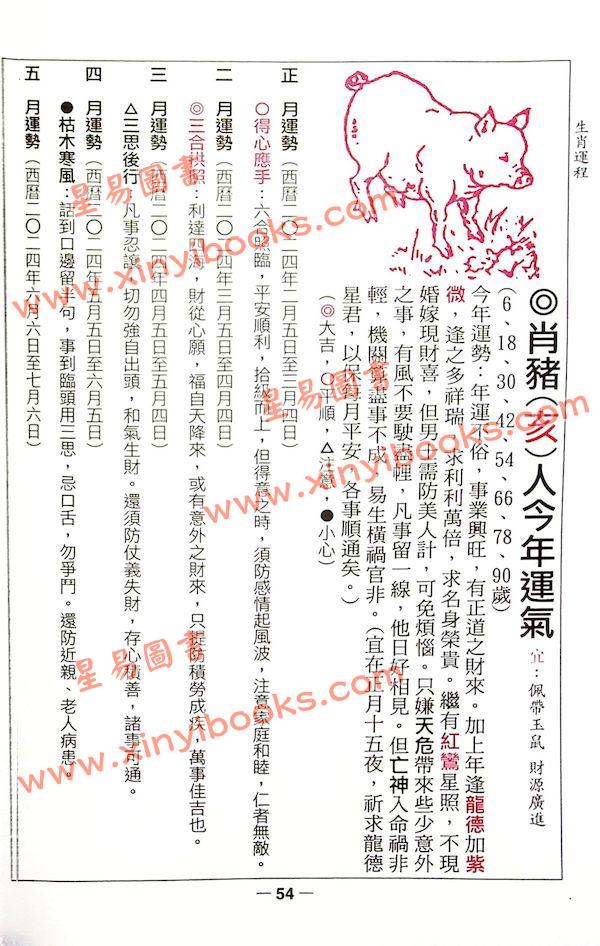 生肖運程
◎肖豬（亥）人今年運氣 宜：佩帶玉鼠 財源廣進
（6、18、30、42、54、66、78、90歲）
今年運勢：年運不俗，事業興旺，有正道之財來。加上年逢龍德加紫
微，逢之多祥瑞，求利利萬倍，求名身榮貴。繼有紅鸞星照，不現
婚嫁現財喜，但男士需防美人計，可免煩惱。只嫌天危帶來些少意外
之事，有風不要駛盡𢃇，凡事留一線，他日好相見。但亡神入命禍非
輕，機關算盡事不成，易生橫禍官非。（宜在正月十五夜，祈求龍德
星君，以保每月平安，各事順通矣。）
（◎大吉，○平順，△注意，●小心）
正 月運勢（西曆二〇二四年二月五日至三月四日）
○得心應手：六合照臨，平安順利，拾級而上，但得意之時，須防感情起風波，注意家庭和睦，仁者無敵。
二 月運勢（西曆二〇二四年三月五日至四月四日）
◎三合拱照：利達四海，財從心願，福自天降來，或有意外之財來，只提防積勞成疾，萬事佳吉也。
三 月運勢（西曆二〇二四年四月五日至五月四日）
△三思後行：凡事忍讓，切勿強自出頭，和氣生財。還須防仗義失財，存心積善，諸事可通。
四 月運勢（西曆二〇二四年五月五日至六月五日）
●枯木寒風：話到口邊留半句，事到臨頭用三思，忌口舌，勿爭鬥。還防近親、老人病患。
五 月運勢（西曆二〇二四年六月六日至七月六日）
— 54 —
星易圖書
www.xinyibooks.com
星易圖書
www.xinyibooks.com
星易圖書
www.xinyibooks.com